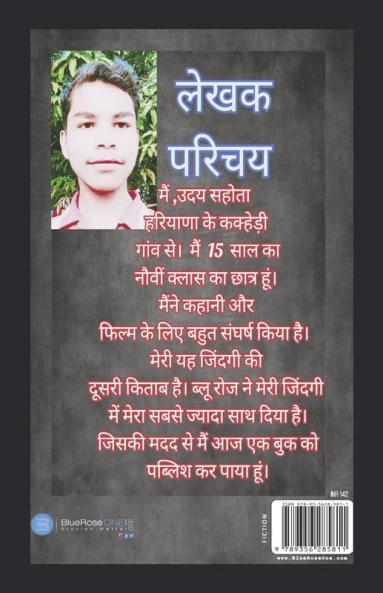 लेखक
परिचय
मैं ,उदय सहोता
हरियाणा के कक्हेड़ी
गांव से। मैं 15 साल का
नौवीं क्लास का छात्र हूं।
मैंने कहानी और
फिल्म के लिए बहुत संघर्ष किया है।
मेरी यह जिंदगी की
दूसरी किताब है। ब्लू रोज ने मेरी जिंदगी
में मेरा सबसे ज्यादा साथ दिया है।
जिसकी मदद से मैं आज एक बुक को
पब्लिश कर पाया हूं।
INR 142
ISBN 978-93-5628-581-1
FICTION
BlueRoseONE
Stories Matter
9 789356 285811
www.BlueRoseOne.com